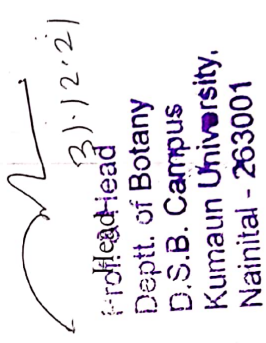 31.12.21
Head
Deptt. of Botany
D.S.B. Campus
Kumaun University,
Nainital - 263001